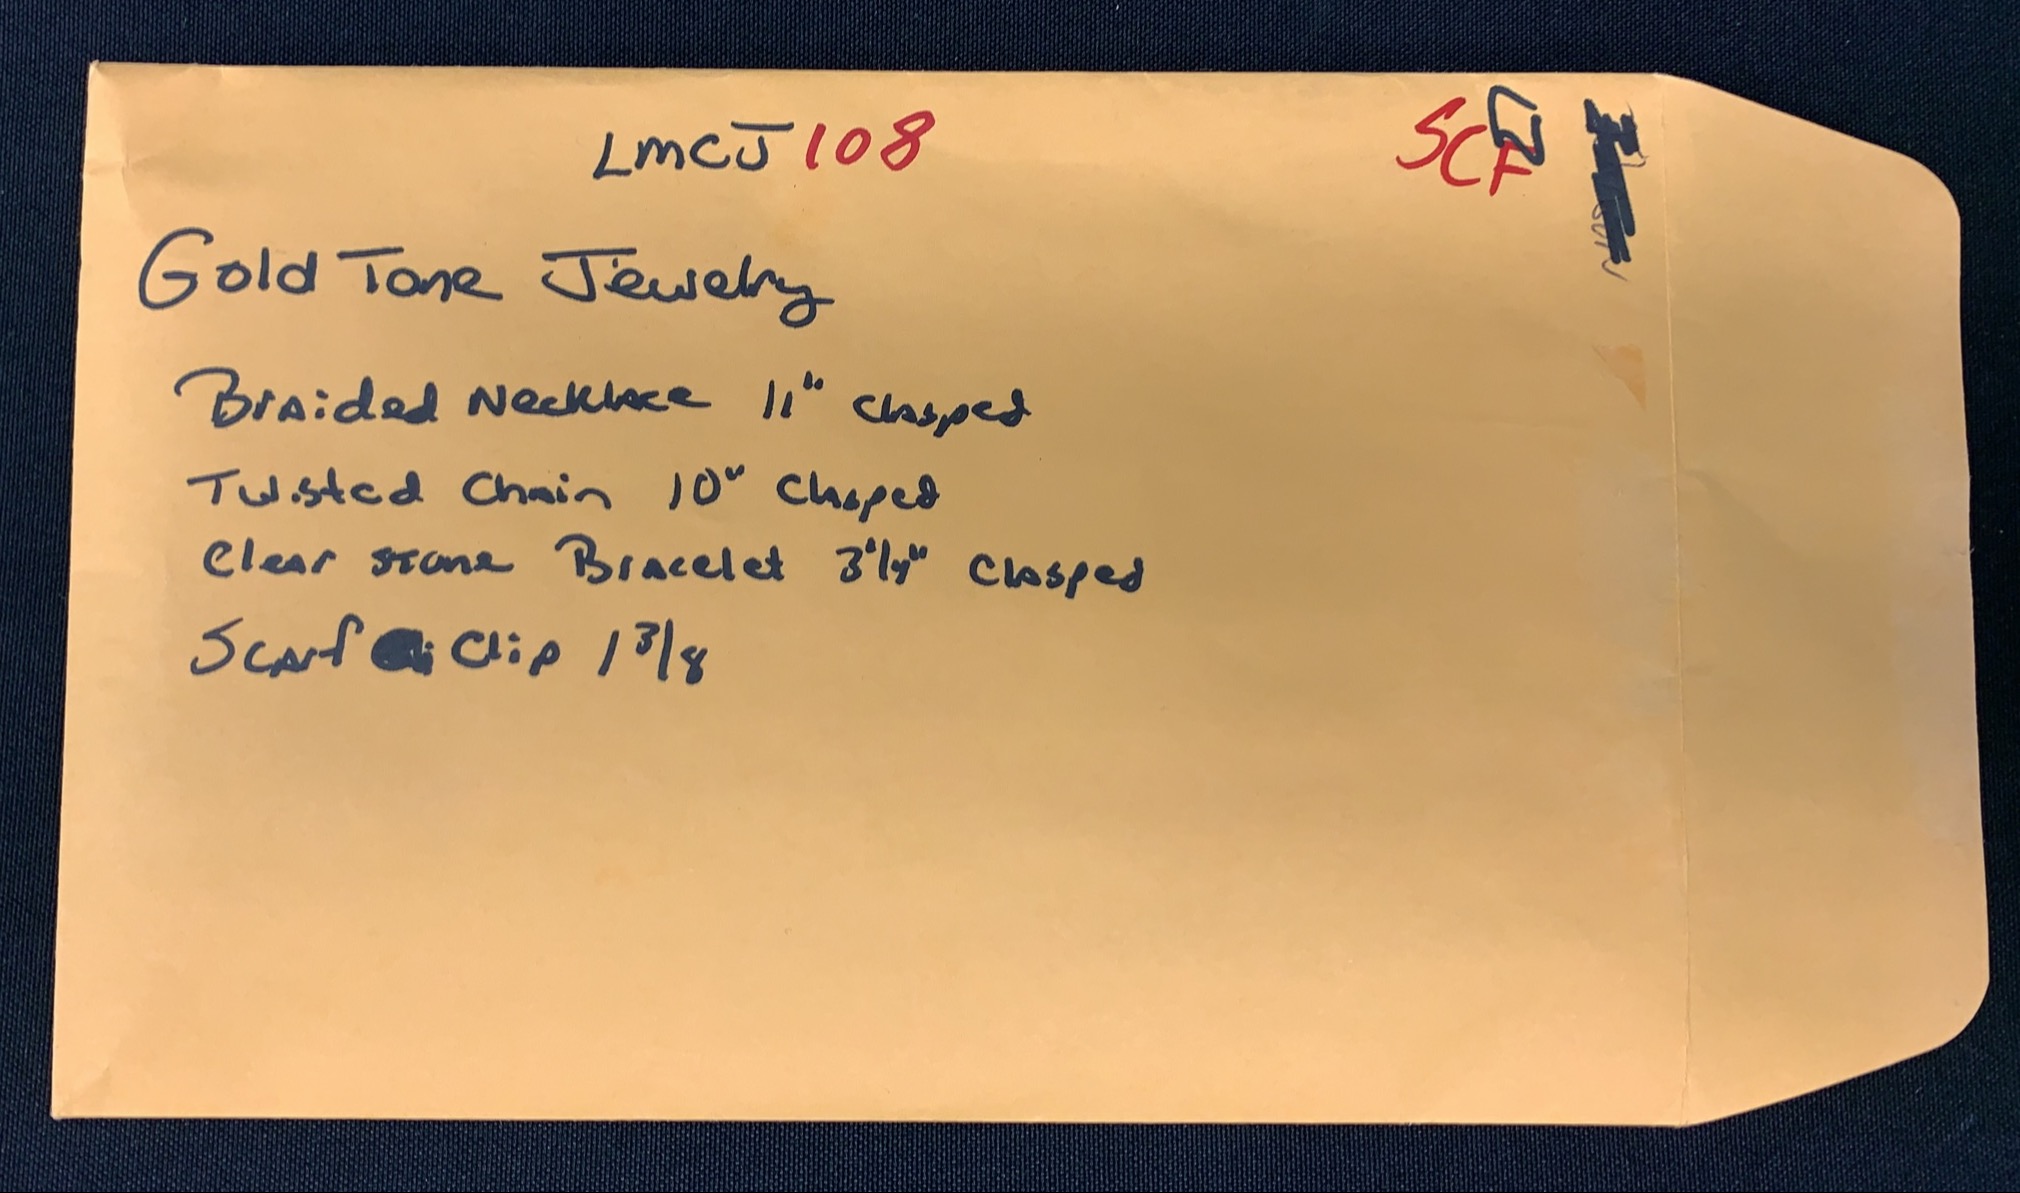 LMCJ 108
SCF
Gold Tone Jewelry
Braided Necklace 11" Clasped
Twisted Chain 10" Clasped
Clear Stone Bracelet 3 1/4" Clasped
Scarf Clip 1 3/8